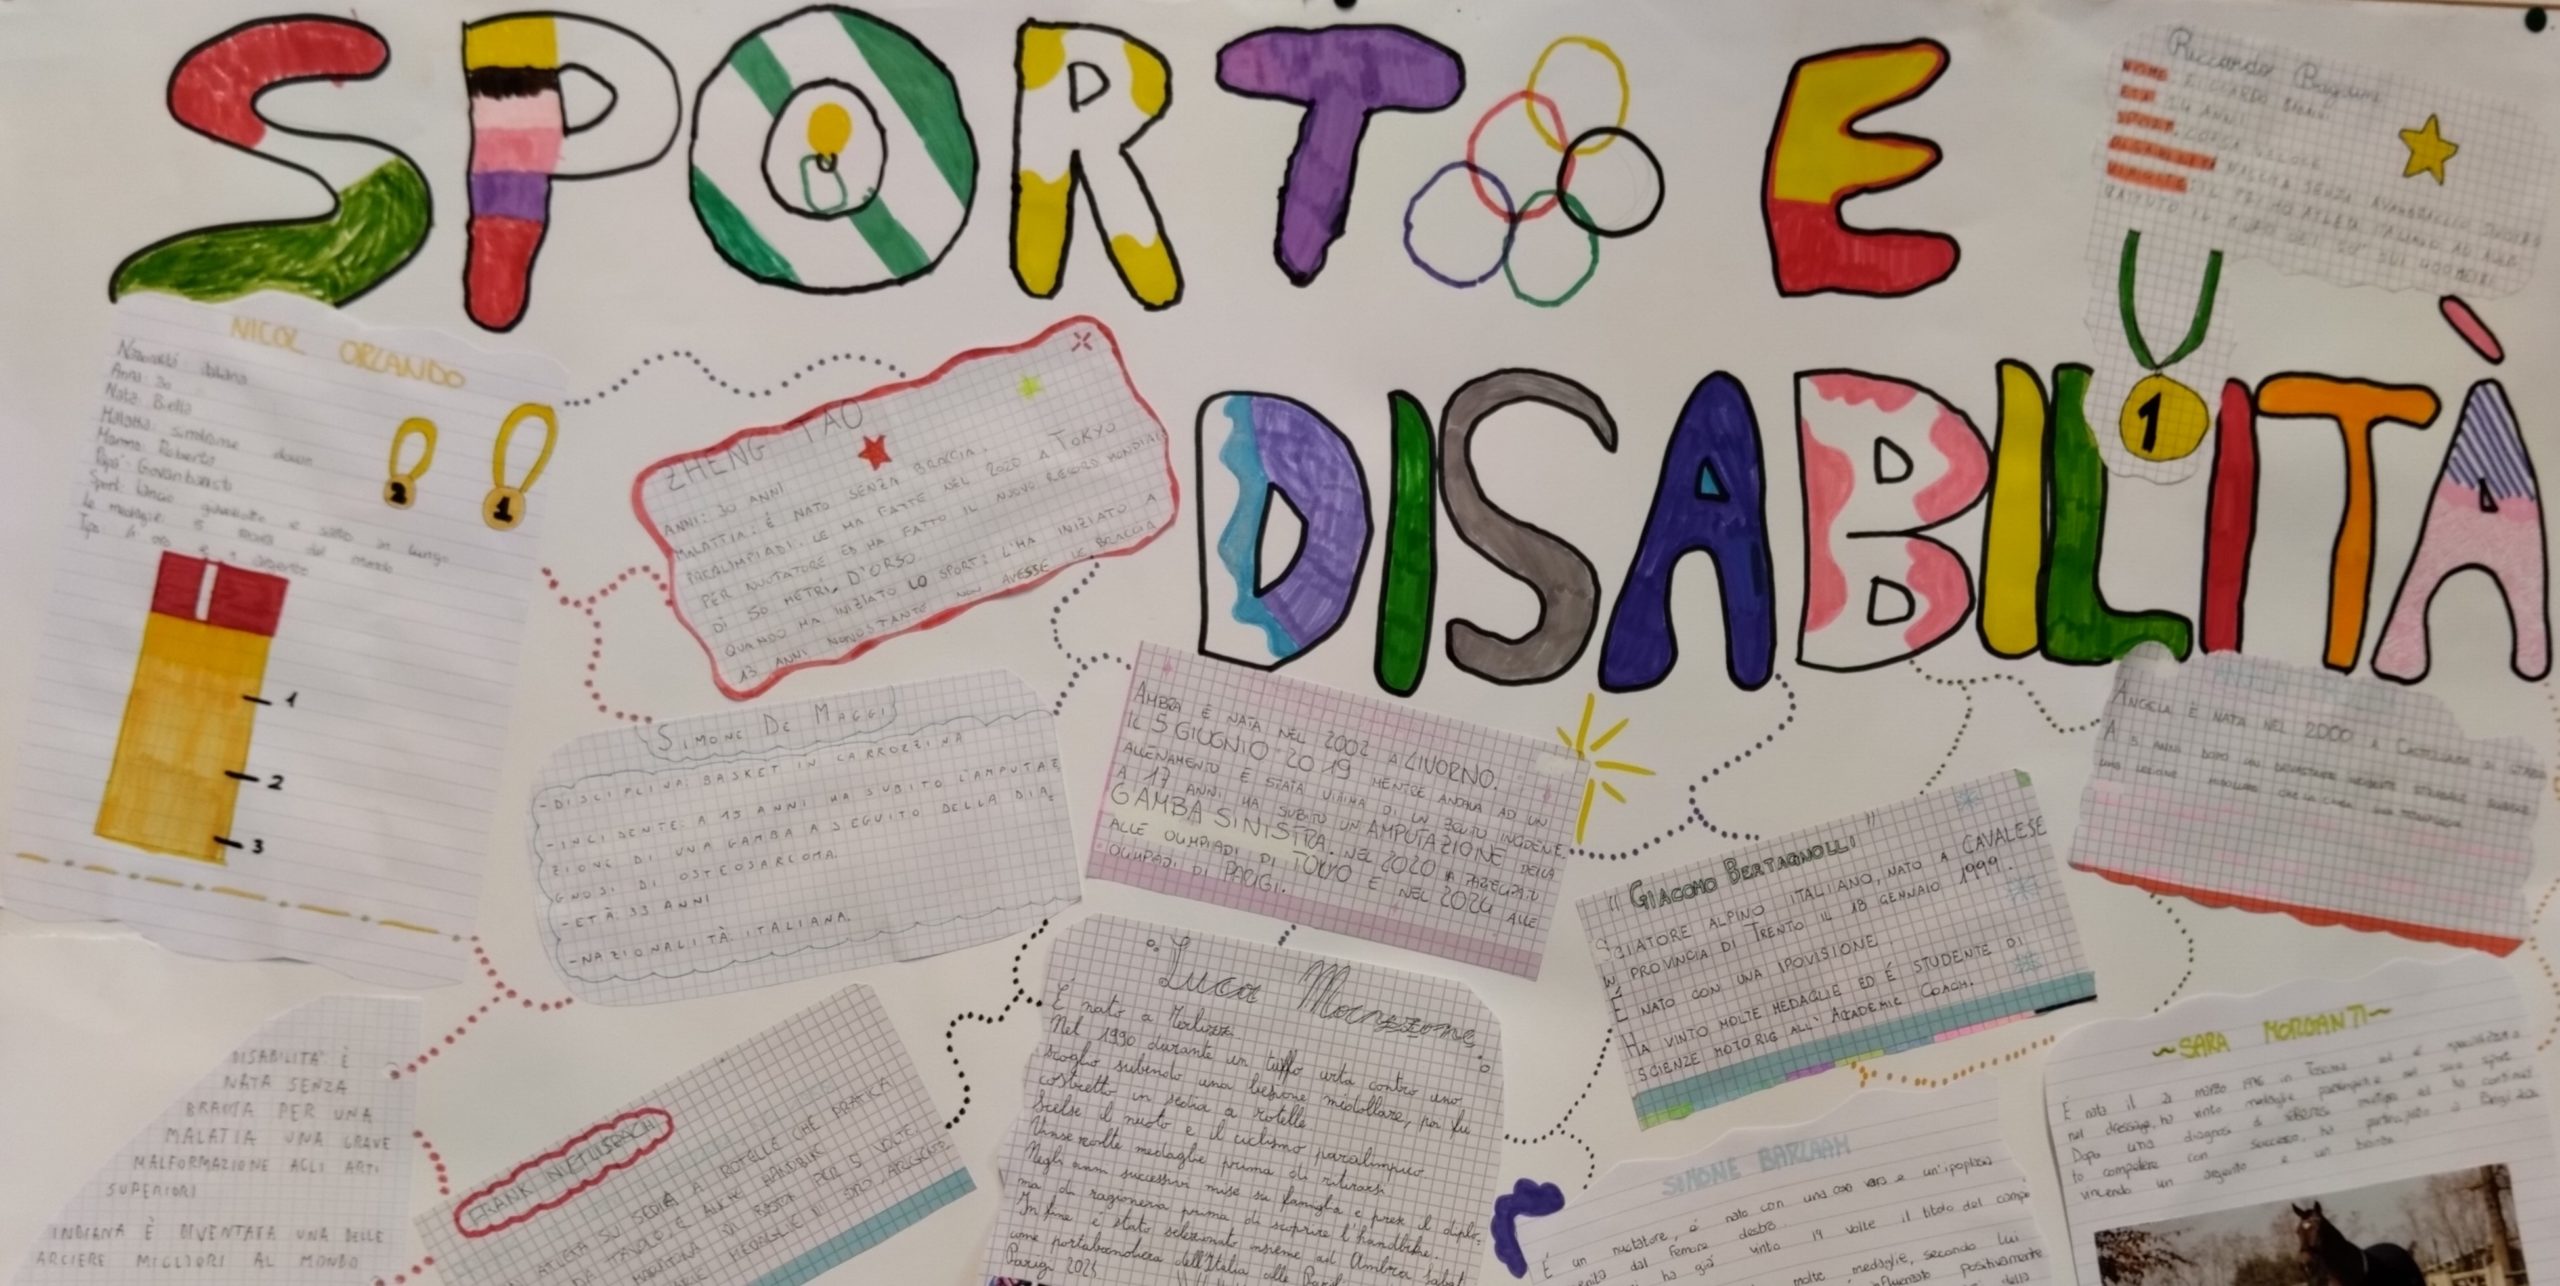 SPORT E
DISABILITÀ
Riccardo
NOME
ETÀ 24 ANNI
SPORT CORSA VELOCE
NICOL ORLANDO
Nazionalità: italiana
Anni: 30
Nata: Biella
Malattia: sindrome down
Mamma: Roberta
Sport: lancio giavellotto e salto in lungo
Le medaglie: 5 record del mondo
2
1
1
2
3
1
ZHENG TAO
ANNI: 30 ANNI
MALATTIA: È NATO SENZA BRACCIA.
PARALIMPIADI: LE HA FATTE NEL 2020 A TOKYO
PER NUOTATORE ED HA FATTO IL NUOVO RECORD MONDIALE
DI 50 METRI D'ORSO
QUANDO HA INIZIATO LO SPORT: L'HA INIZIATO A
13 ANNI NONOSTANTE NON AVESSE LE BRACCIA
SIMONE DE MAGGI
-DISCIPLINA: BASKET IN CARROZZINA
-INCIDENTE: A 15 ANNI HA SUBITO L'AMPUTAZ
ZIONE DI UNA GAMBA A SEGUITO DELLA DIA=
GNOSI DI OSTEOSARCOMA.
-ETÀ: 33 ANNI
-NAZIONALITÀ: ITALIANA.
AMBRA È NATA NEL 2002 A LIVORNO.
IL 5 GIUGNIO 2019 MENTRE ANDAVA AD UN
ALLENAMENTO È STATA VITIMA DI UN BRUTO INCIDENE.
A 17 ANNI HA SUBITO UN'AMPUTAZIONE DELLA
GAMBA SINISTRA. NEL 2020 A PARTECIPATO
ALLE OLIMPIADI DI TOKYO E NEL 2024 ALLE
OLIMPIADI DI PARIGI.
ANGELA È NATA NEL 2000 A
A 5 ANNI DOPO UN DEVASTANTE INCIDENTE STRADALE
UNA LESIONE MIDOLLARE
"GIACOMO BERTAGNOLLI"
SCIATORE ALPINO ITALIANO, NATO A CAVALESE
IN PROVINCIA DI TRENTO IL 18 GENNAIO 1999.
È NATO CON UNA IPOVISIONE.
HA VINTO MOLTE MEDAGLIE ED È STUDENTE DI
SCIENZE MOTORIE ALL'ACCADEMIC COACH.
Luca Mazzone
È nato a Terlizzi.
Nel 1990 durante un tuffo urta contro uno
scoglio subendo una lesione midollare, poi fu
costretto in sedia a rotelle
Scelse il nuoto e il ciclismo paralimpico.
Vinse molte medaglie prima di ritirarsi
Negli anni successivi mise su famiglia e prese il diplo-
ma di ragioneria prima di scoprire l'handbike.
In fine è stato selezionato insieme ad Ambra Sabat
come portabandiera dell'Italia alle
Parigi
DISABILITÀ È
NATA SENZA
BRACCIA PER UNA
MALATIA UNA GRAVE
MALFORMAZIONE AGLI ARTI
SUPERIORI
INDIANA È DIVENTATA UNA DELLE
ARCIERE MIGLIORI AL MONDO
FRANK NIETLISBACH
ATLETA SU SEDIA A ROTELLE CHE PRATICA
DA TAVOLO, E ANCHE HANDBIKE
MARATONA DI BOSTON PER 5 VOLTE
MEDAGLIE
SIMONE BARLAAM
È un nuotatore, è nato con una
femore destro.
ha già vinto 19 volte il titolo del campo
molte medaglie, secondo lui
positivamente
~SARA MORGANTI~
È nata il
nel dressage, ha vinto medaglie
Dopo una diagnosi di sclerosi multipla
to competere con successo, ha partecipato a Parigi
vincendo un argento e un bronzo